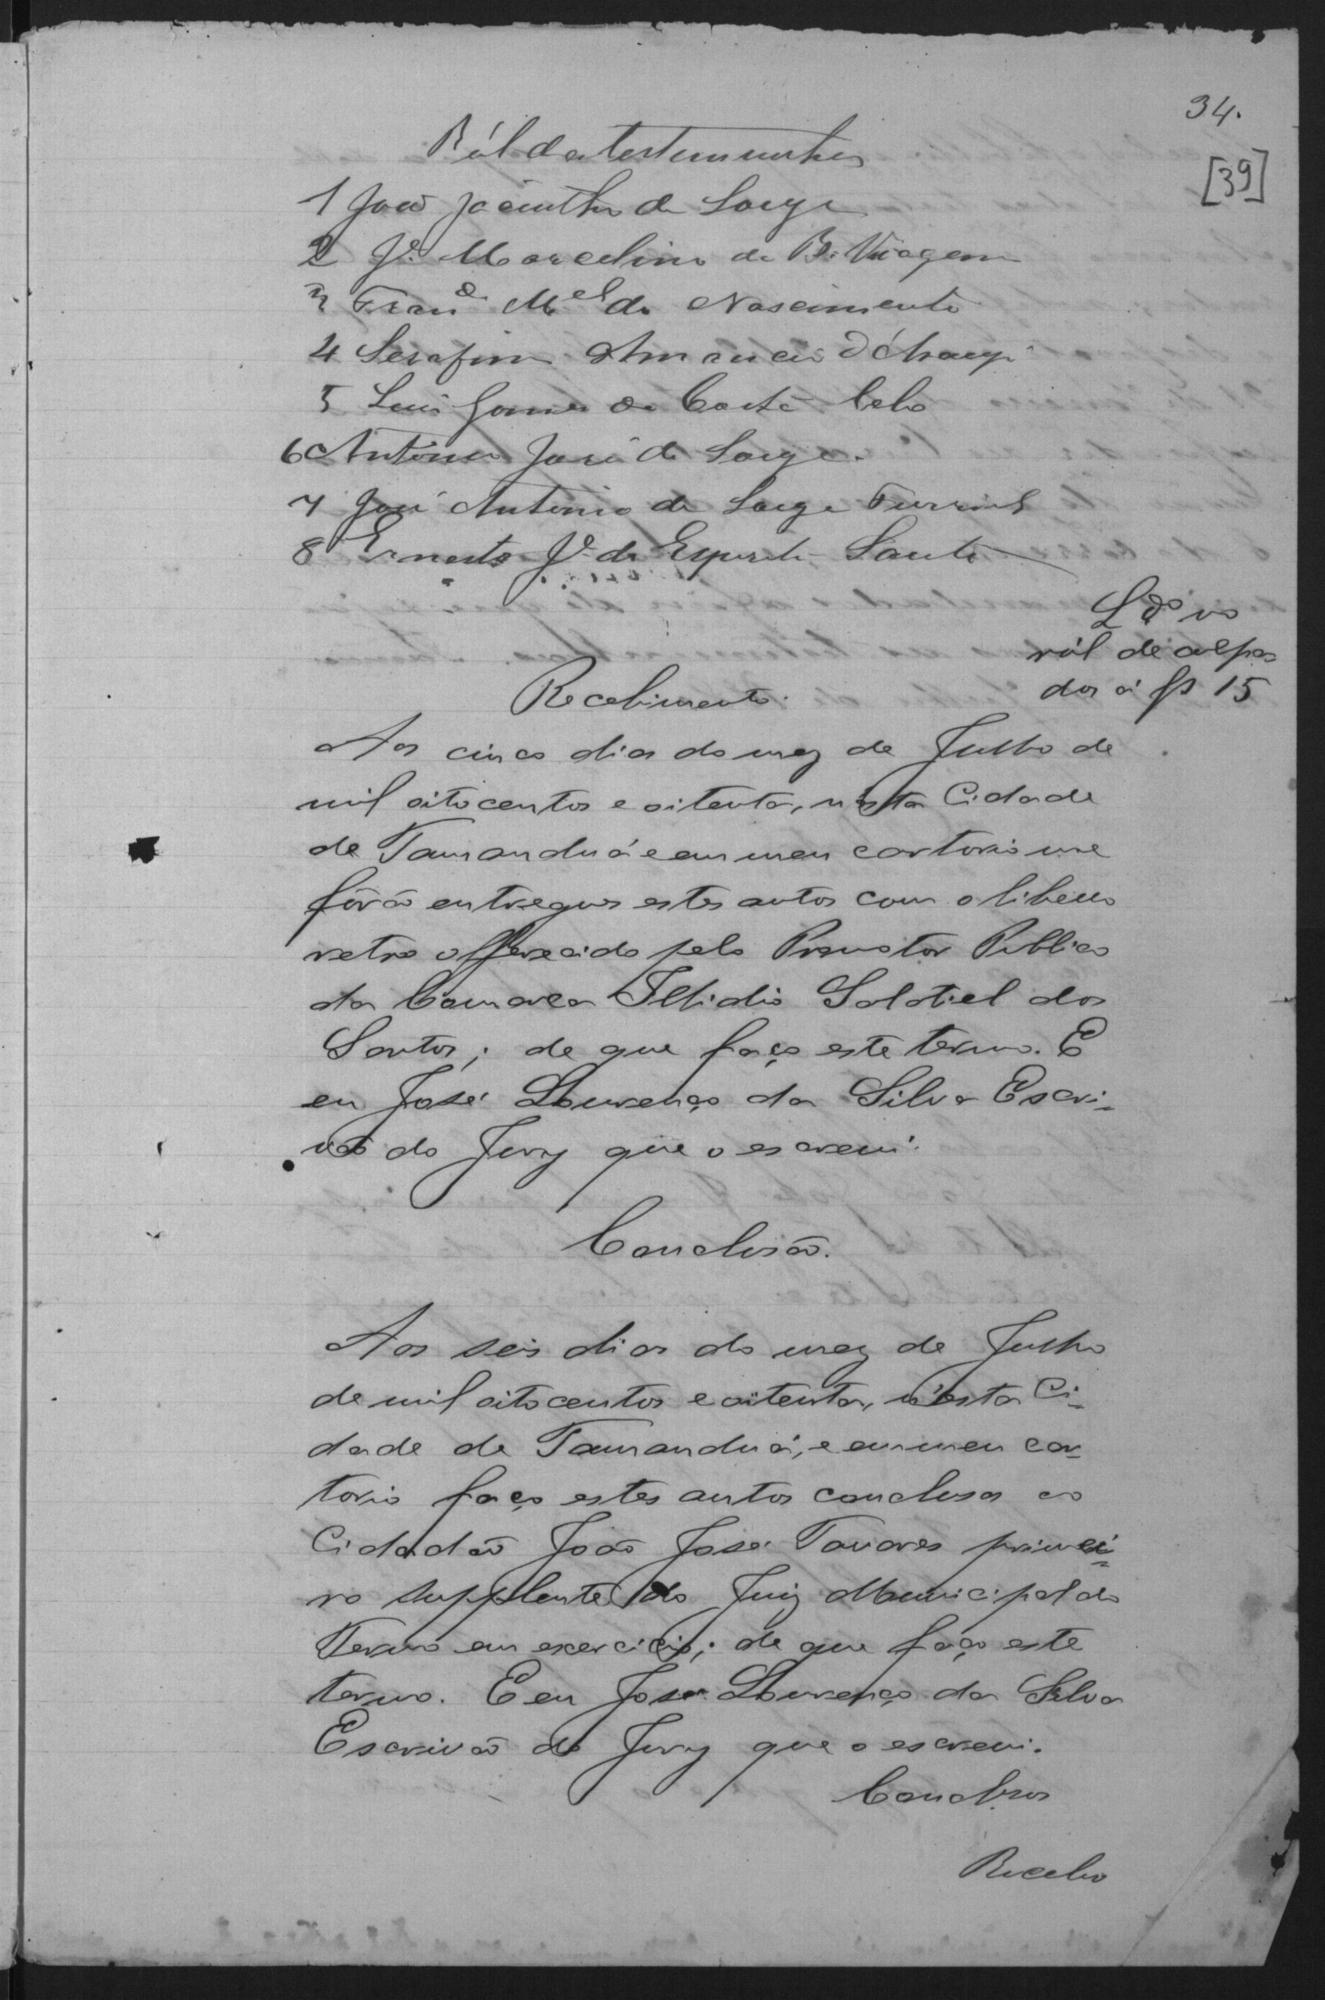 34.
[39]
Ról das testemunhas
1 João Jacintho de
2 Je. Marcelino da B. Viagem
3 Franco Mel do Nascimento
4 Serafim Amancio d'Araujo
5 Luis Gomes da Costa
6 Antonio José de
7 José Antonio de
8 Ernesto Je. do Espirito Santo
Ldo no
ról de culpa
dos á fs 15
Recebimento.
Aos cinco dias do mez de Julho de
mil oitocentos e oitenta, n'esta Cidade
de Tamanduá e em meu cartorio me
fôrão entregues estes autos com o libello
retro offerecido pelo Promotor Publico
da Comarca Illidio Salatiel dos
Santos; de que faço este termo. E
eu José Lourenço da Silva Escri-
vão do Jury que o escrevi.
Conclusão.
Aos seis dias do mez de Julho
de mil oitocentos e oitenta, n'esta Ci-
dade de Tamanduá, e em meu car-
torio faço estes autos conclusos ao
Cidadão João José Tavares primei-
ro supplente do Juiz Municipal do
Termo em exercicio; de que faço este
termo. E eu José Lourenço da Silva
Escrivão do Jury que o escrevi.
Conclusos
Recebo